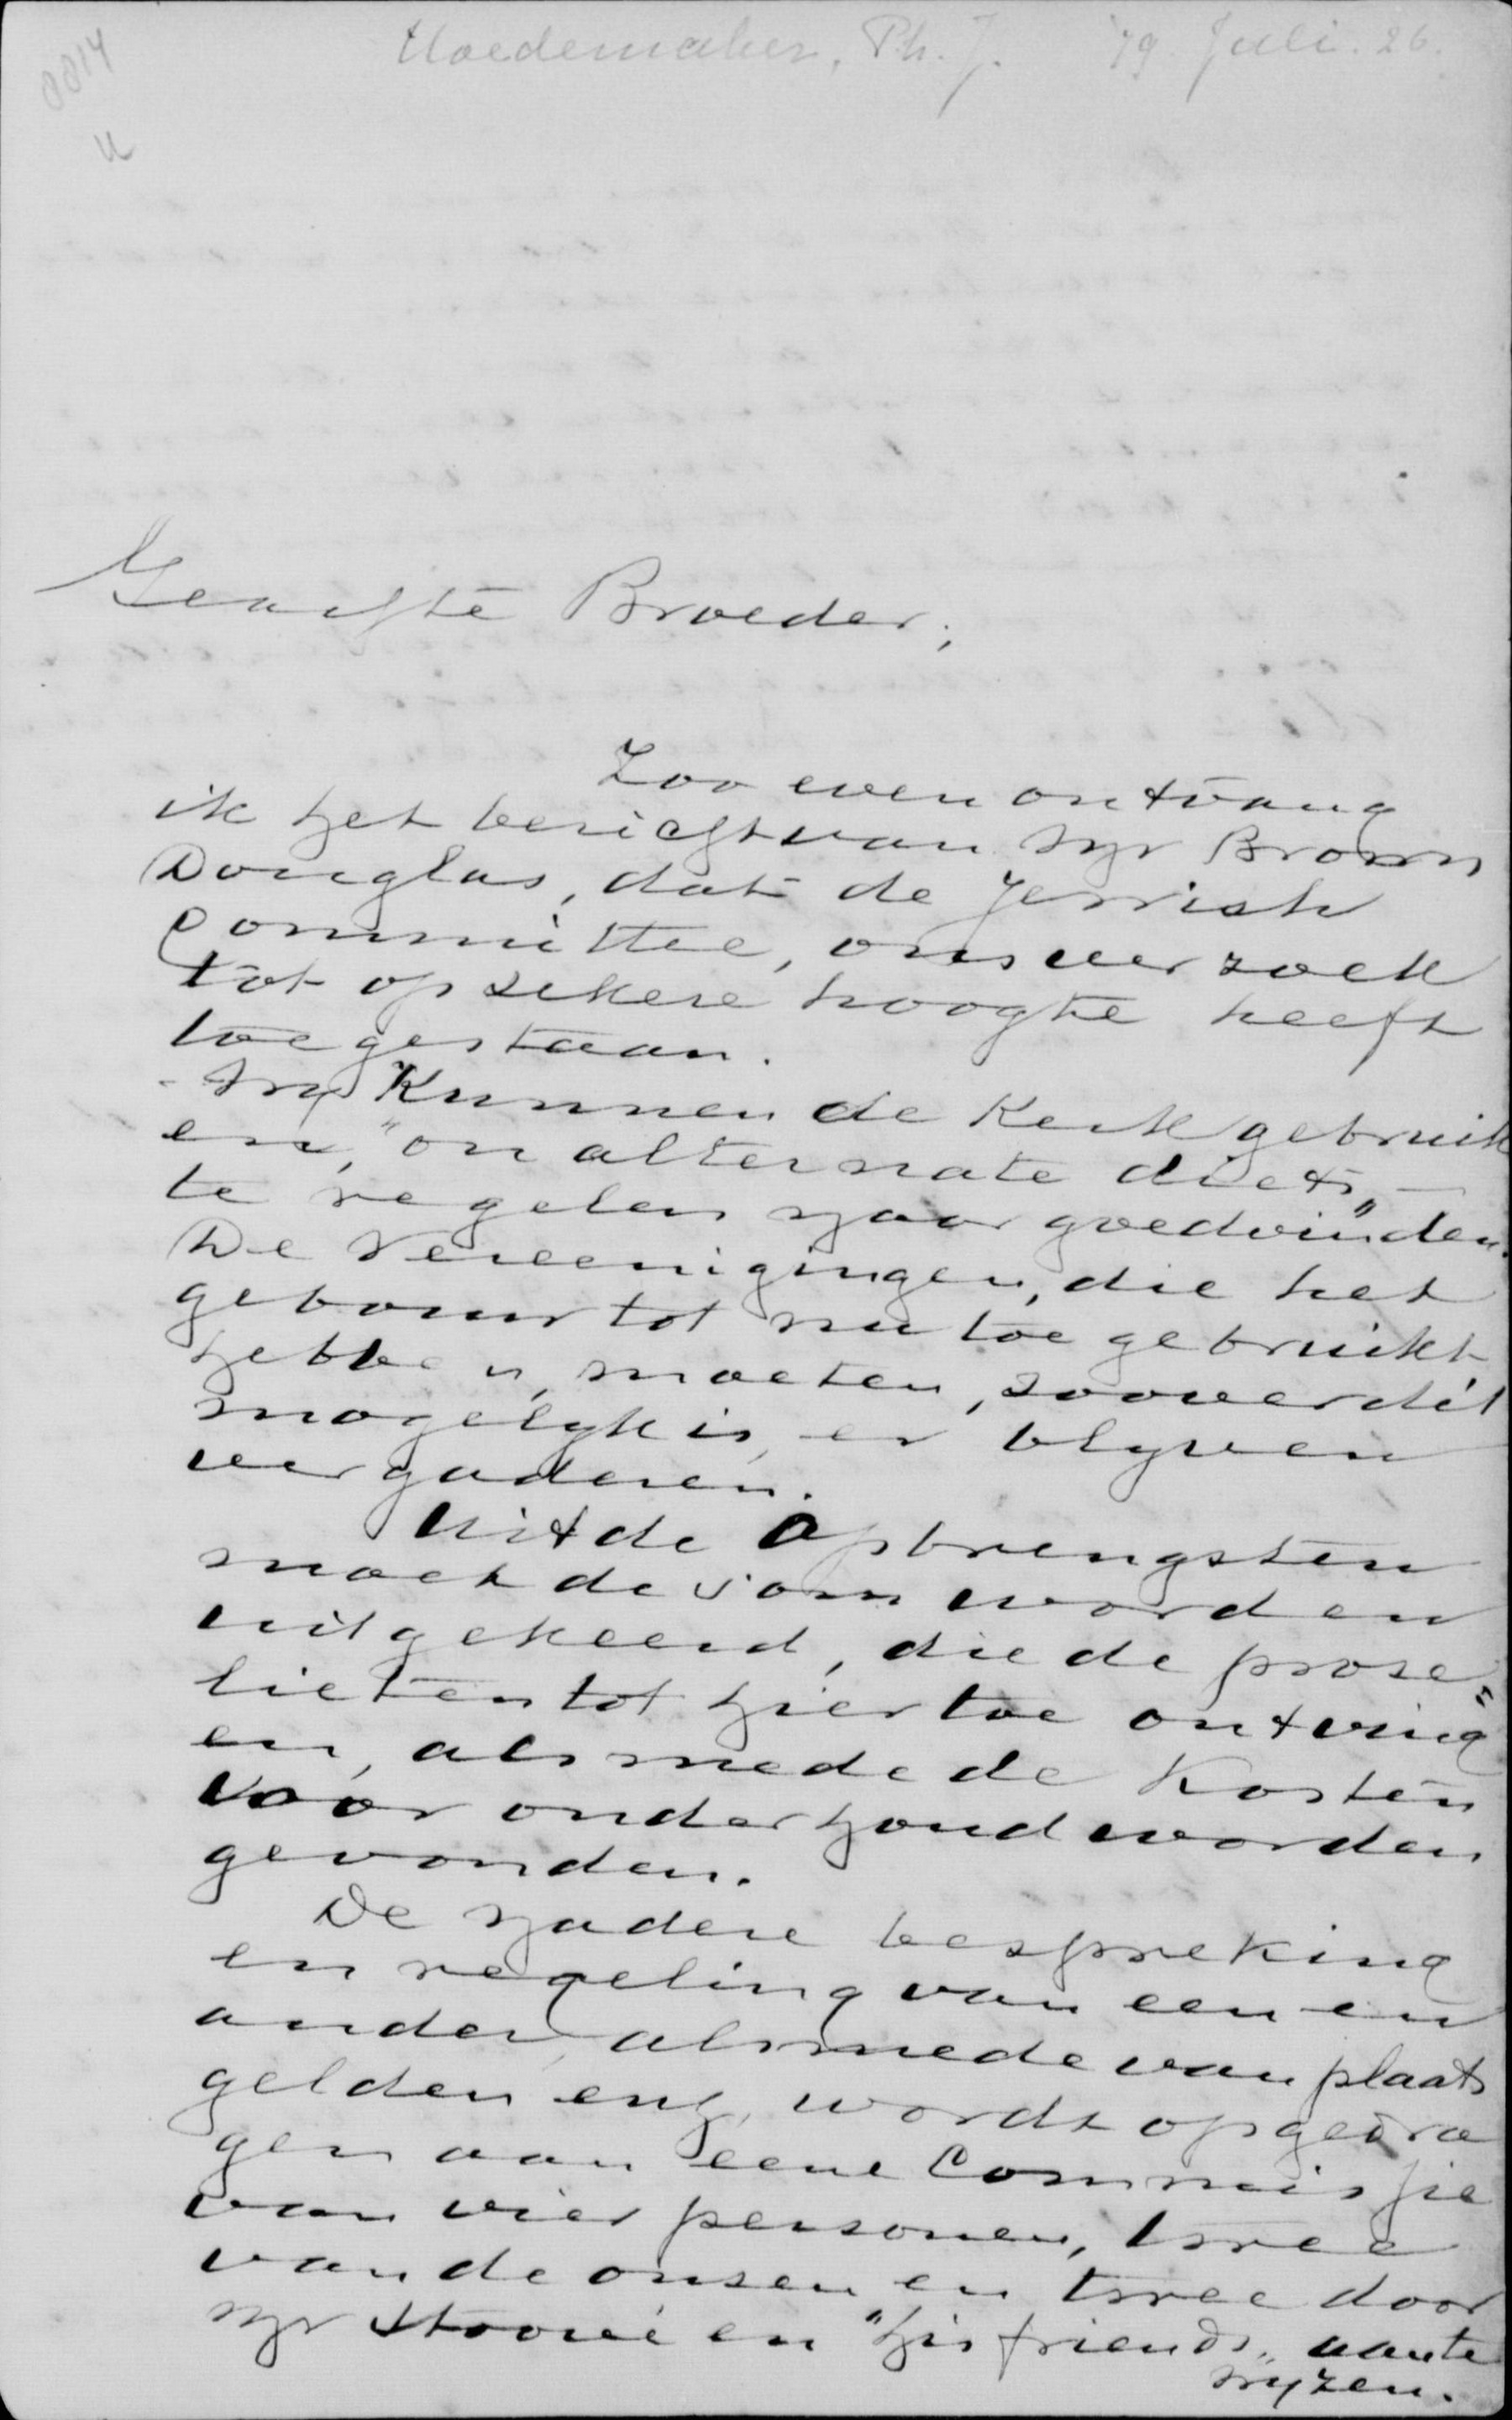 Hoedemaker, Ph. J. 79 Juli. 26.
0014
u
Geachte Broeder,
Zoo even ontvang
ik het bericht van Mr Brown
Douglas, dat de Jewish
Committee, ons verzoek
tot op zekere hoogte heeft
toegestaan.
Wy Kunnen de Kerk gebruik
en, "on alternate diets" -
te regelen naar goedvinden.
De Vereenigingen, die het
gebouw tot nu toe gebruikt
hebben, moeten, zoover dit
mogelyk is, er blyven
vergaderen.
Uit de Opbrengsten
moet de som worden
uitgekeerd, die de prose"
lieten tot hiertoe ontving
en, alsmede de Kosten
voor onderhoud worden
gevonden.
De nadere bespreking
en regeling van een en
ander, alsmede van plaats
gelden enz, wordt opgedra
gen aan eene Commissie
van vier personen, twee
van de onzen en twee door
Mr en "his friends" aan te
wyzen.